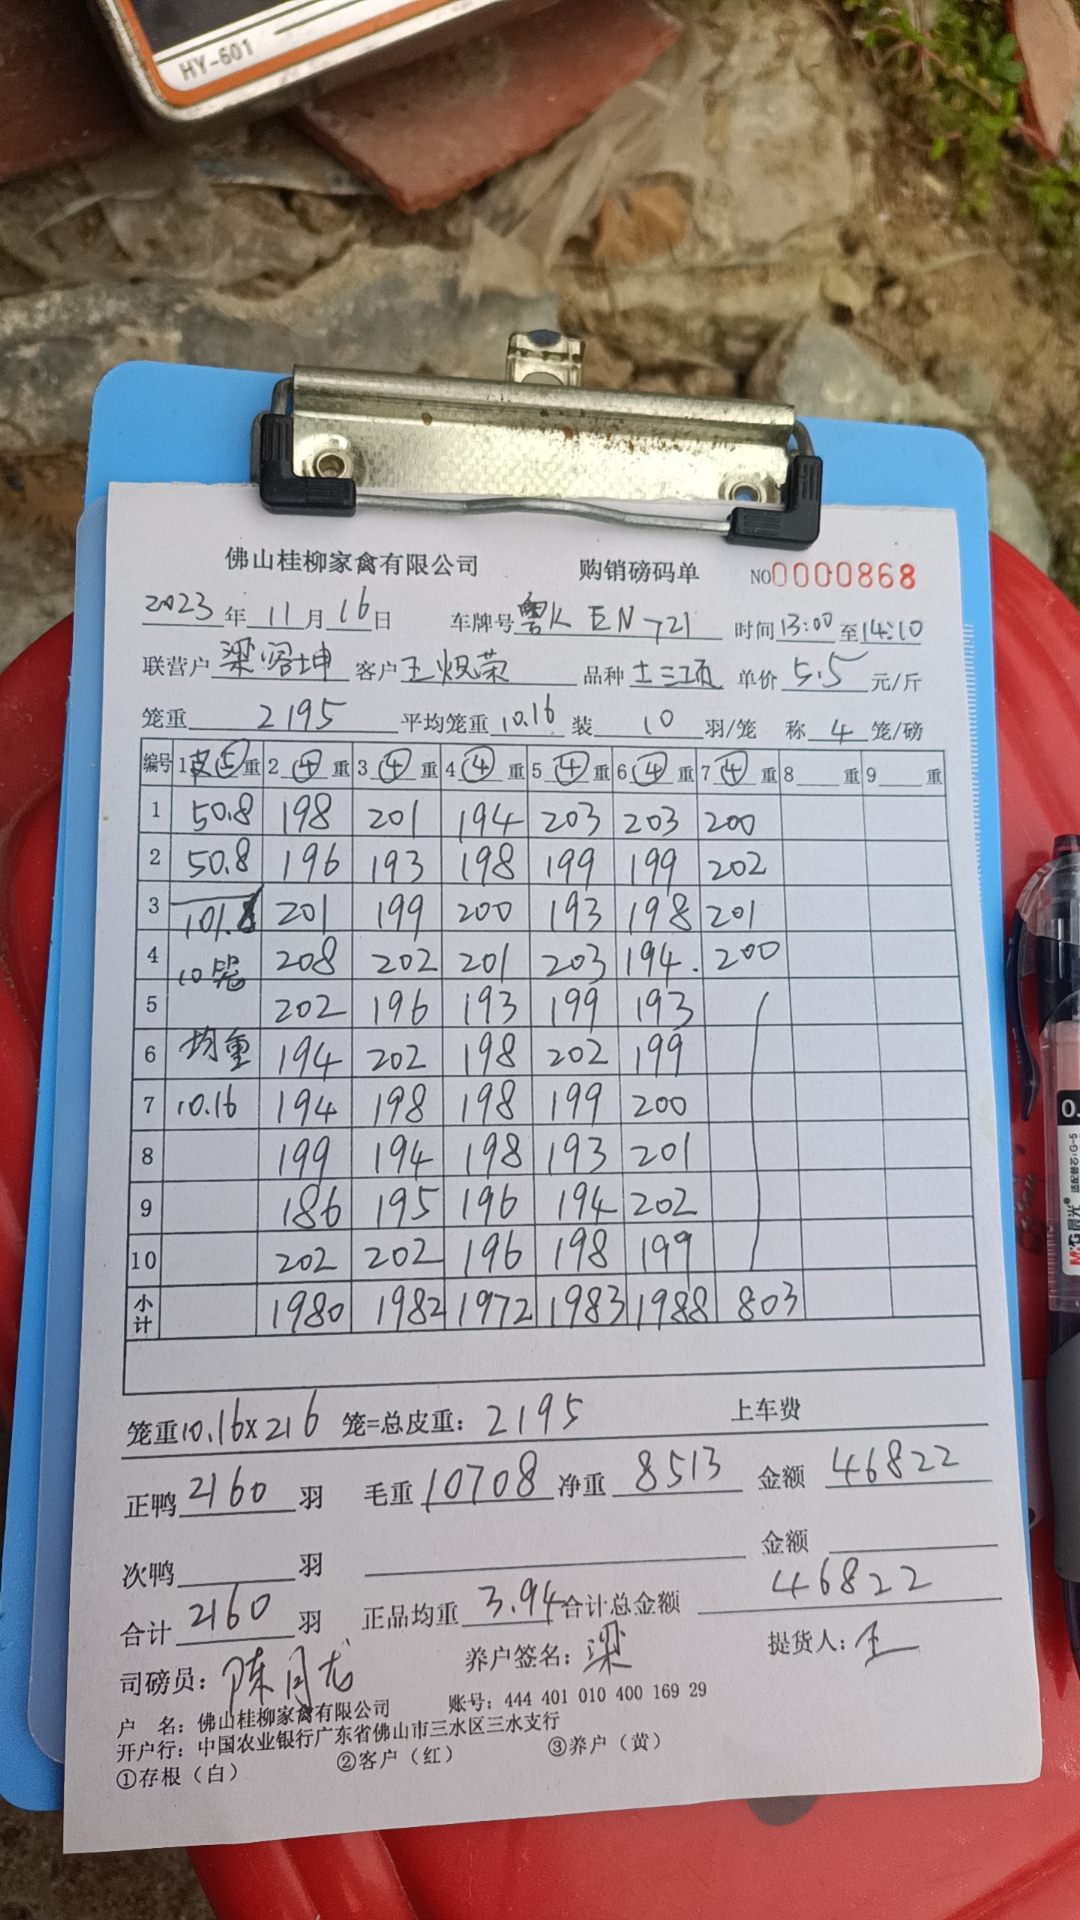 HY-601
佛山桂柳家禽有限公司 购销磅码单 NO0000868
2023年11月16日 车牌号粤K EN721 时间13:00至14:10
联营户梁 坤 客户王炽荣 品种 单价5.5元/斤
笼重2195 平均笼重10.16 装10羽/笼 称4笼/磅
编号 1皮⑤重 2④重 3④重 4④重 5④重 6④重 7④重 8重 9重
1 50.8 198 201 194 203 203 200
2 50.8 196 193 198 199 199 202
3 101.6 201 199 200 193 198 201
4 10笼 208 202 201 203 194. 200
5 202 196 193 199 193
6 均重 194 202 198 202 199
7 10.16 194 198 198 199 200
8 199 194 198 193 201
9 186 195 196 194 202
10 202 202 196 198 199
小计 1980 1982 1972 1983 1988 803
笼重10.16x216 笼=总皮重: 2195 上车费
正鸭2160羽 毛重10708净重8513 金额46822
次鸭 羽 金额
合计2160羽 正品均重3.94合计总金额46822
司磅员:陈月龙 养户签名:梁 提货人:王
户 名: 佛山桂柳家禽有限公司 账号: 444 401 010 400 169 29
开户行: 中国农业银行广东省佛山市三水区三水支行
①存根(白) ②客户(红) ③养户(黄)
0.
M&G晨光®
适配替芯:G-5